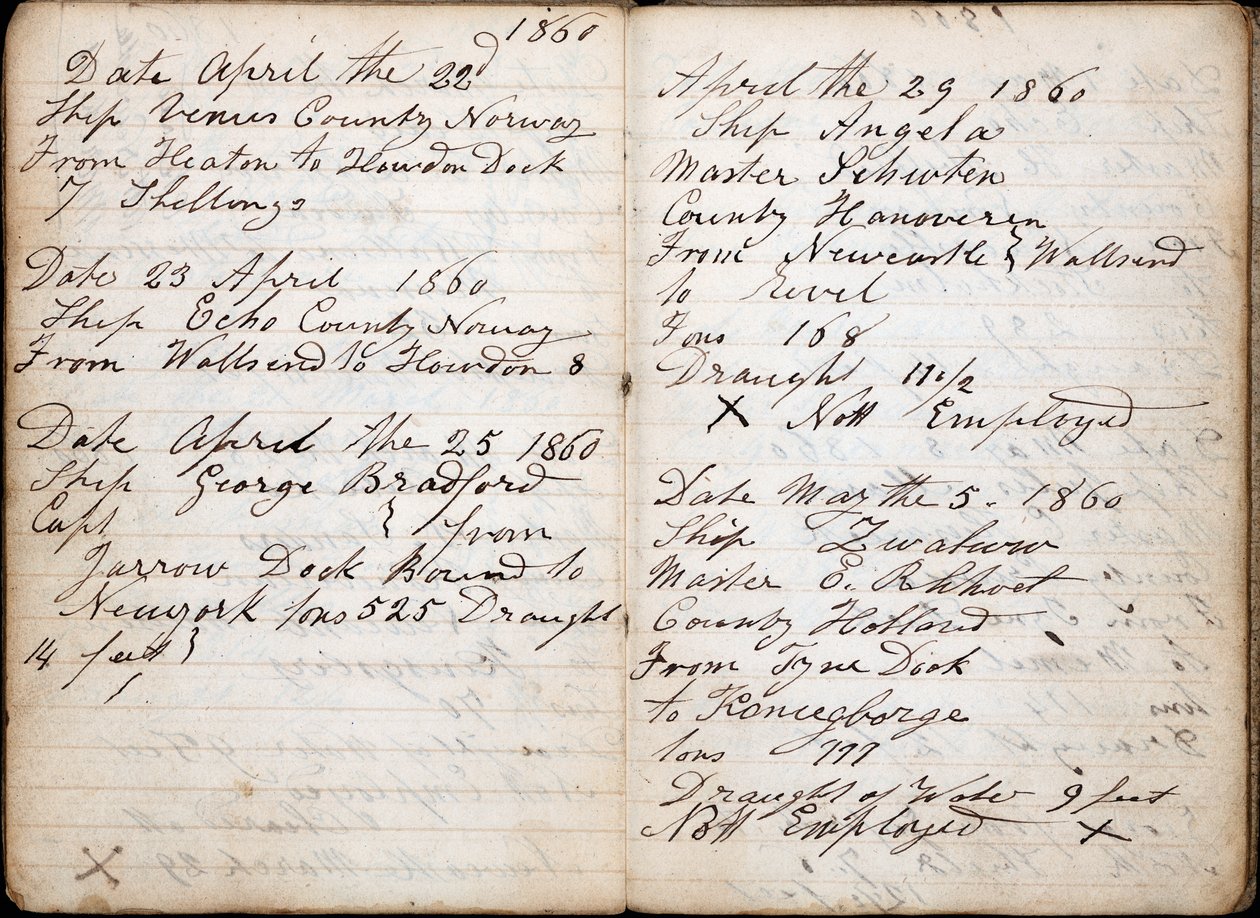 1860
Date April the 22d
Ship Venus County Norway
From Heaton to Howdon Dock
7 Shellings
Date 23 April 1860
Ship Echo County Norway
From Wallsend to Howdon 8
Date April the 25 1860
Ship George Bradford
Capt } from
Jarrow Dock Bound to
Newyork tons 525 Draught
14 feett }
April the 29 1860
Ship Angela
Master Schuten
County Hanoveren
From Newcastle } Wallsend
to Revel
Tons 168
Draught 11 1/2
X Nott Employed
Date May the 5. 1860
Ship
Master E.
County Holland
From Tyne Dock
to Koniegborge
tons
Draught of Water 9 feet
Nott Employed X